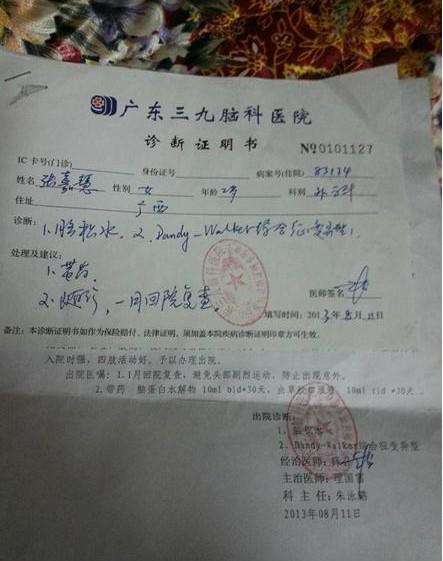 广东三九脑科医院
诊断证明书 №0101127
IC 卡号(门诊) 身份证号 病案号(住院) 83134
姓名 张嘉慧 性别 女 年龄 2岁 科别 外三科
住址 广西
诊断:
1.脑积水, 2. Dandy-Walker综合征(变异型),
处理及建议:
1.带药
2.随诊,一月回院复查。
医师签名
填写时间: 2013年8月11日
备注:本诊断证明书如作为保险赔付、法律证明,须加盖本院疾病诊断证明印章方可生效。
入院时强,四肢活动好。予以办理出院。
出院医嘱: 1.1月回院复查,避免头部剧烈运动,防止出现意外。
2.带药 脑蛋白水解物 10ml bid*30天, 10ml tid *30天.
出院诊断:
1. 脑积水
2. Dandy-Walker综合征变异型
经治医师:
主治医师: 理国富
科 主 任: 朱泳鹤
2013年08月11日